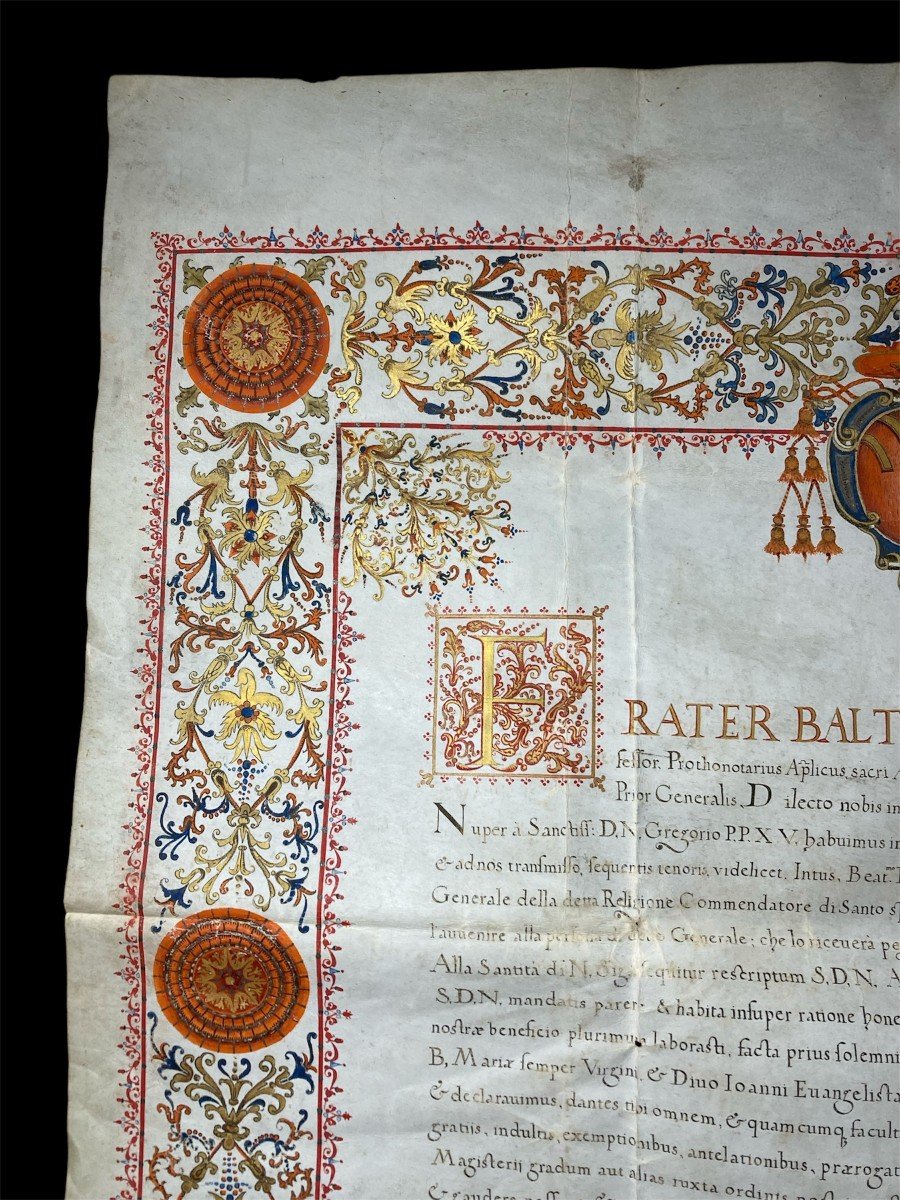 FRATER BALT
feſſor. Prothonotarius Aplicus, sacri A
Prior Generalis, Dilecto nobis in
Nuper à Sanctiſſ: D. N. Gregorio P.P. X V. habuimus in
& ad nos transmiſſo, ſequentis tenoris, videlicet. Intus, Beat.
Generale della detta Religione Commendatore di Santo
l'auuenire alla persona di detto Generale; che lo riceuerà
Alla Santità di N. Sig. sequitur reſcriptum S.D.N. A
S.D.N. mandatis parere & habita inſuper ratione hone
nostræ beneficio plurimum laborasti, facta prius ſolemni
B, Mariæ ſemper Virgini, & Diuo Ioanni Euangeliſta
& declarauimus, dantes tibi omnem, & quamcumq; facult
gratijs, indultis, exemptionibus, antelationibus, prærogat
Magisterij gradum aut alias iuxta ordinis
& gaudere